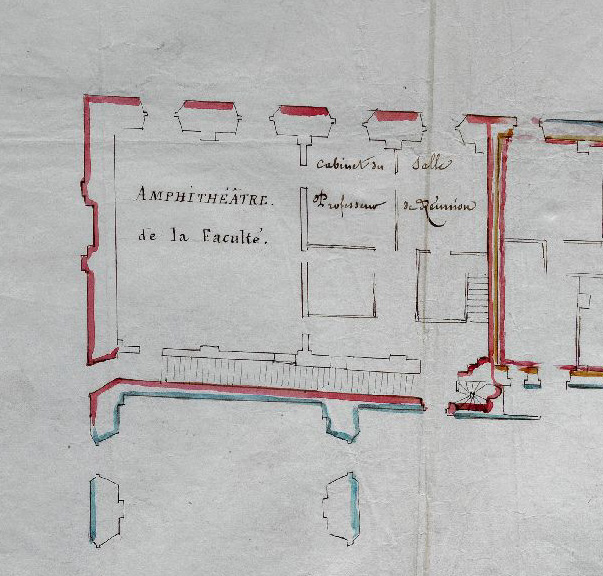 AMPHITHÉÂTRE.
de la Faculté.
Cabinet du
Professeur
Salle
de Réunion